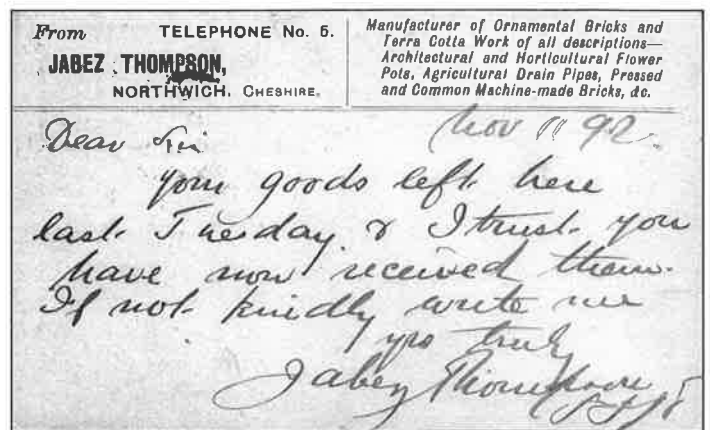 From TELEPHONE No. 5.
JABEZ THOMPSON,
NORTHWICH, CHESHIRE.
Manufacturer of Ornamental Bricks and
Terra Cotta Work of all descriptions—
Architectural and Horticultural Flower
Pots, Agricultural Drain Pipes, Pressed
and Common Machine-made Bricks, &c.
Nov 11 92.
Dear Sir
your goods left here
last Tuesday & I trust you
have now received them.
If not kindly write me
yrs truly
Jabez Thompson